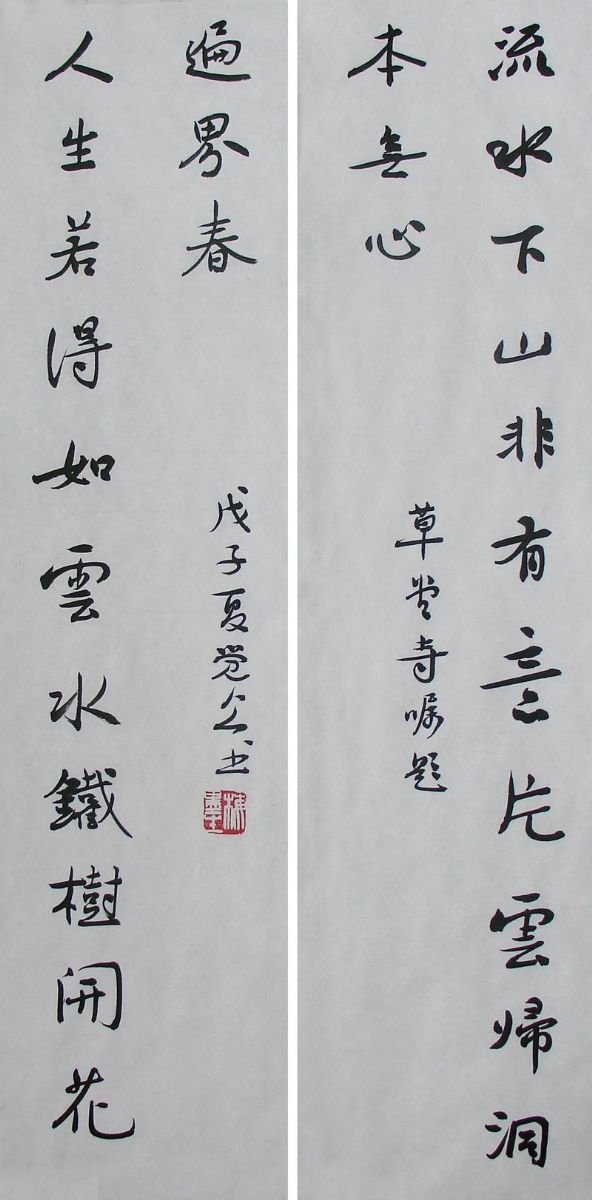 流水下山非有意片雲歸洞
本無心
草堂寺嘱题
人生若得如雲水鐵樹開花
遍界春
戊子夏觉书